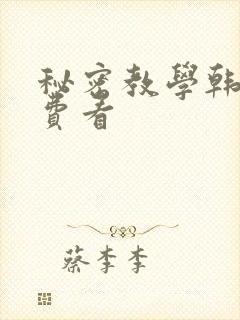 秘密教學韓
費看
蔡李李